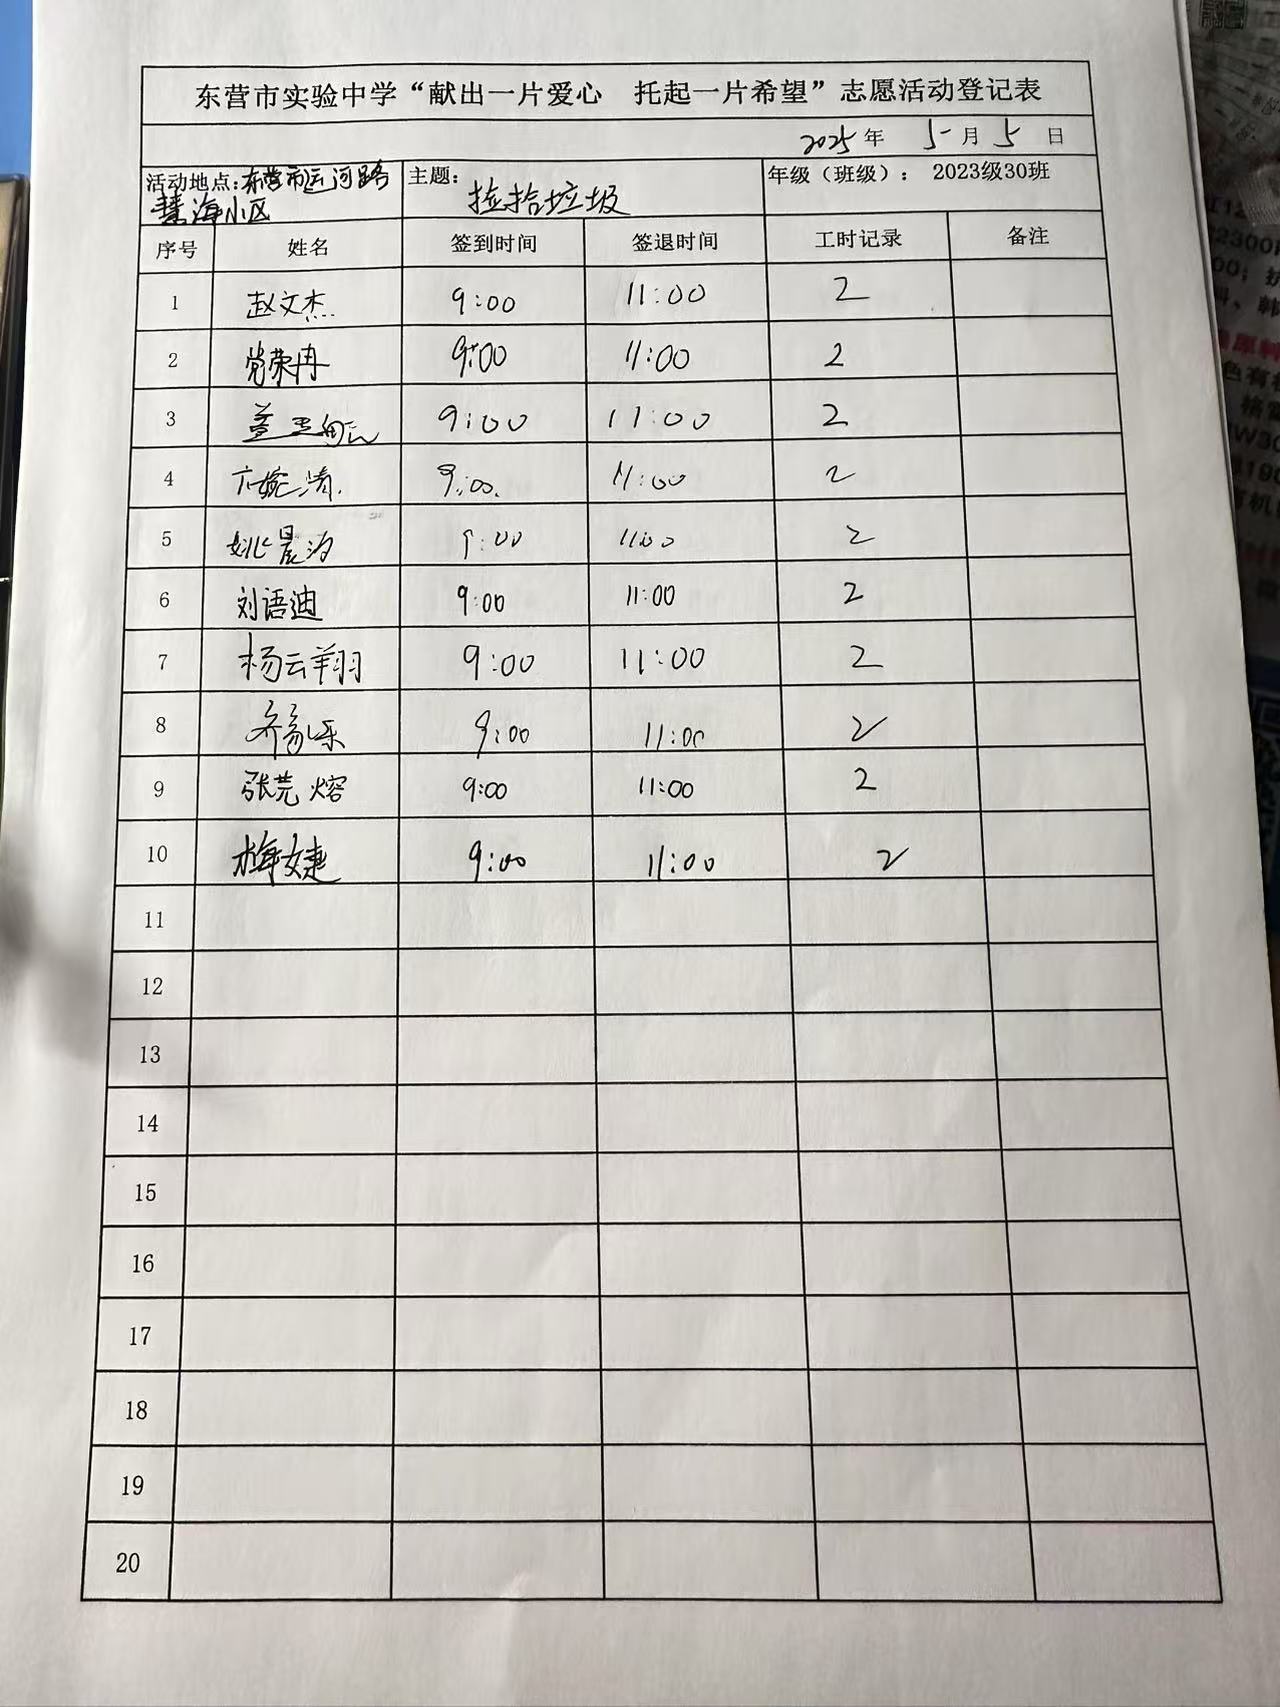 东营市实验中学“献出一片爱心 托起一片希望”志愿活动登记表
2025年 5月 5日
活动地点:东营市运河路 主题: 捡拾垃圾 年级（班级）: 2023级30班
慧海小区
序号 姓名 签到时间 签退时间 工时记录 备注
1 赵文杰 9:00 11:00 2
2 党荣冉 9:00 11:00 2
3 9:00 11:00 2
4 婉清 9:00 11:00 2
5 姚晨 9:00 11:00 2
6 刘语迪 9:00 11:00 2
7 杨云翔 9:00 11:00 2
8 齐家乐 9:00 11:00 2
9 张芫熔 9:00 11:00 2
10 梅婕 9:00 11:00 2
11
12
13
14
15
16
17
18
19
20